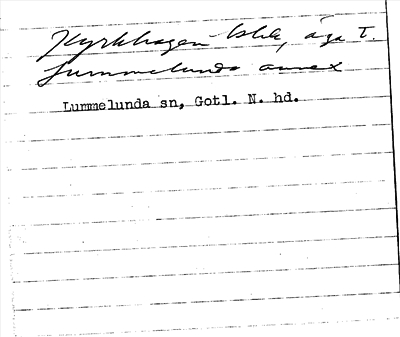 Kyrkhagen äga T.
Lummelunda annex
Lummelunda sn, Gotl. N. hd.